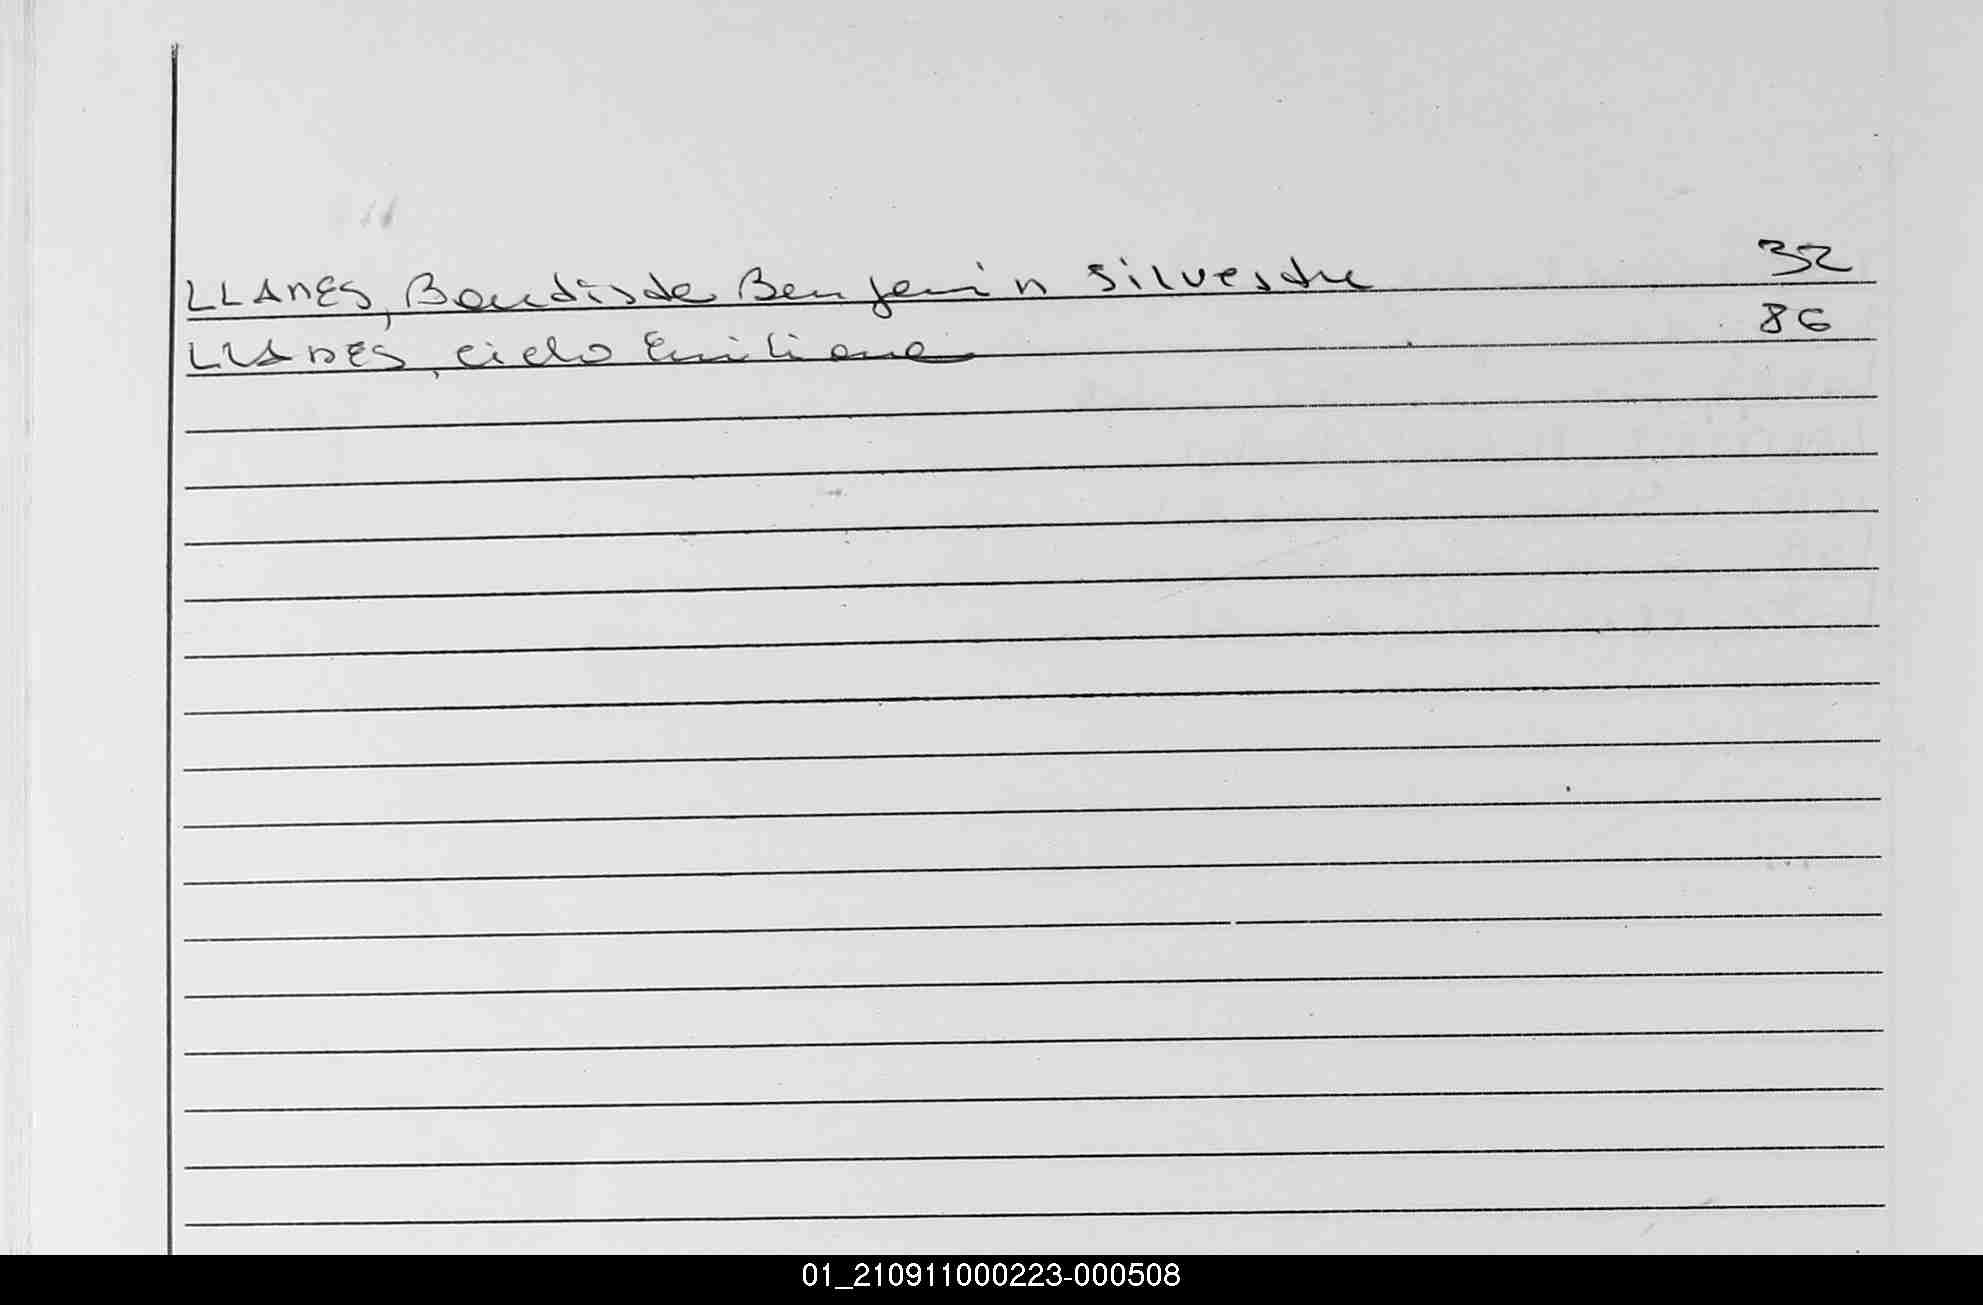 LLANES, Bautista Benjamin Silvestre 32
LLANES, Cielo Emiliana 86
01_210911000223-000508